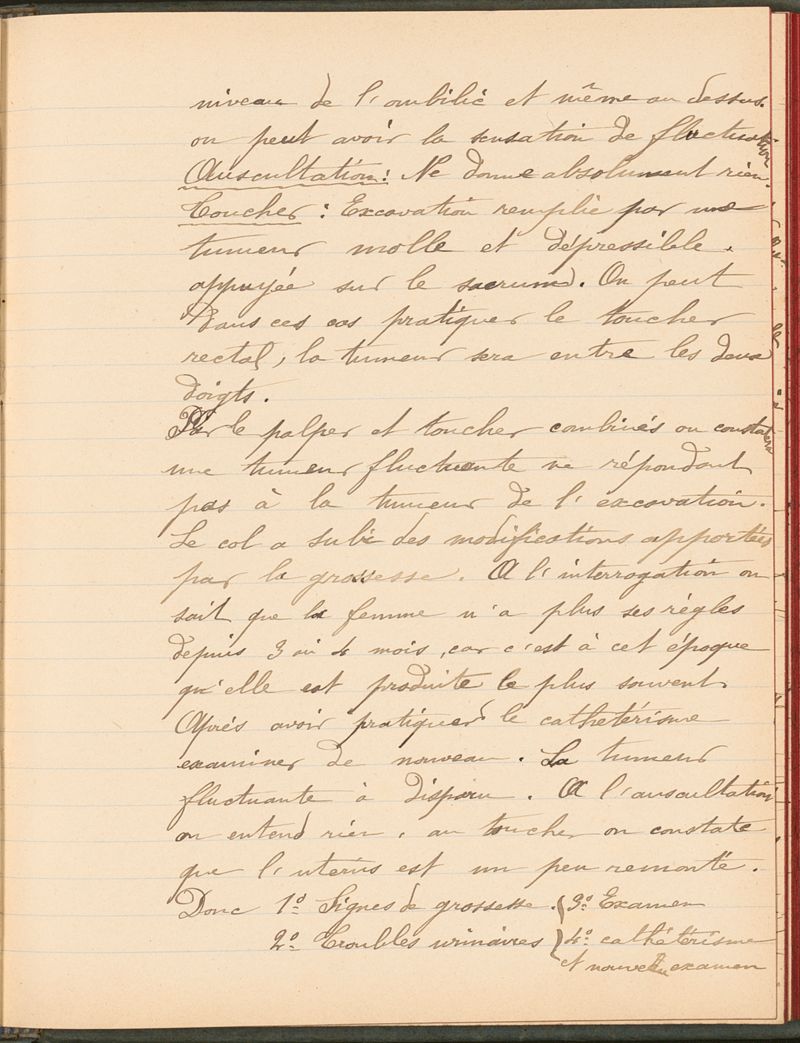 niveau de l'ombilic et même au dessus.
on peut avoir la sensation de fluctuation
Auscultation : Ne donne absolument rien.
Toucher : Excavation remplie par une
tumeur molle et dépressible.
appuyée sur le sacrum. On peut
dans ces cas pratiquer le toucher
rectal, la tumeur sera entre les deux
doigts.
Par le palper et toucher combinés on constatera
une tumeur fluctuante ne répondant
pas à la tumeur de l'excavation.
Le col a subi des modifications apportées
par la grossesse. A l'interrogation on
sait que la femme n'a plus ses règles
depuis 3 ou 4 mois, car c'est à cet époque
qu'elle est produite le plus souvent.
Après avoir pratiquer le cathetérisme
examiner de nouveau. La tumeur
fluctuante à disparu. A l'auscultation
on entend rien, au toucher on constate
que l'utérus est un peu remonté.
Donc 1º Signes de grossesse. { 3º Examen
2º Troubles urinaires } 4º cathétérisme
et nouvel examen